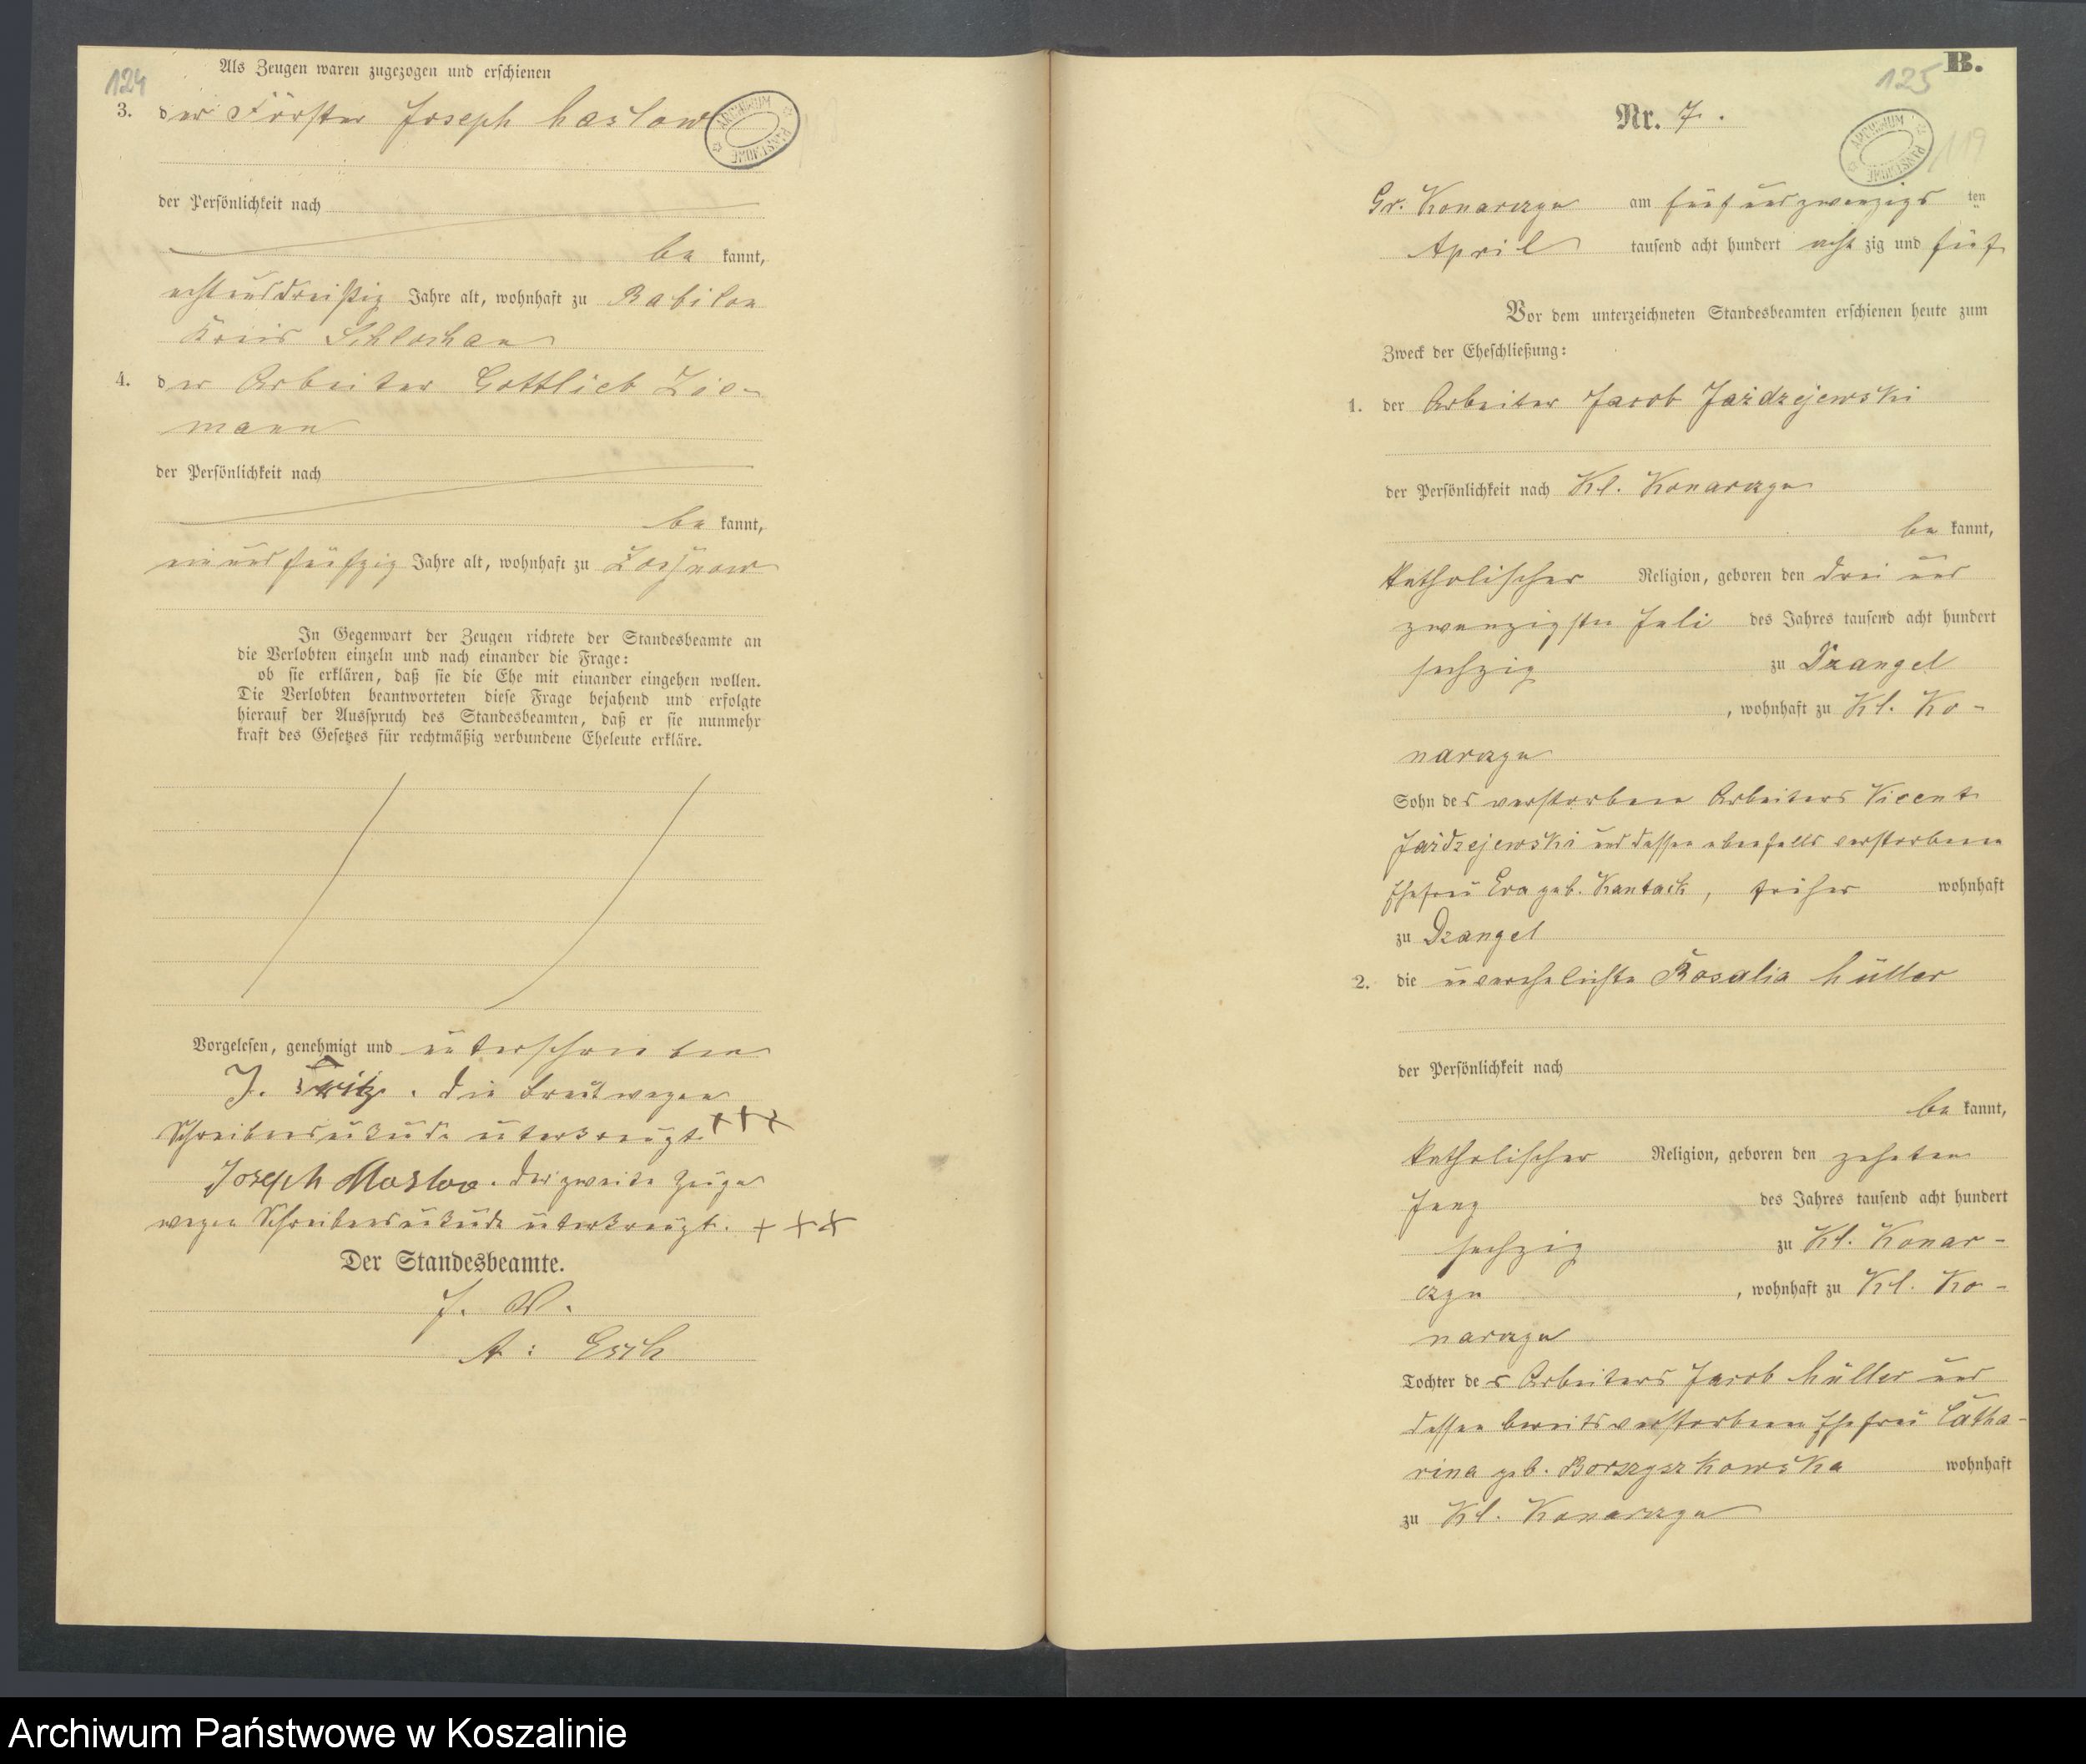 124
Als Zeugen waren zugezogen und erschienen
3. der Förster Joseph Maslow
ARCHIWUM PAŃSTWOWE
der Persönlichkeit nach
be kannt,
achtunddreißig Jahre alt, wohnhaft zu Babilon
Kreis Schlochau
4. der Arbeiter Gottlieb Zie-
mann
der Persönlichkeit nach
be kannt,
einundfünfzig Jahre alt, wohnhaft zu
In Gegenwart der Zeugen richtete der Standesbeamte an
die Verlobten einzeln und nach einander die Frage:
ob sie erklären, daß sie die Ehe mit einander eingehen wollen.
Die Verlobten beantworteten diese Frage bejahend und erfolgte
hierauf der Ausspruch des Standesbeamten, daß er sie nunmehr
kraft des Gesetzes für rechtmäßig verbundene Eheleute erkläre.
Vorgelesen, genehmigt und unterschrieben
J. Fritz. Die Braut wegen
Schreibensunkunde unterkreuzt +++
Joseph Maslow. Der zweite Zeuge
wegen Schreibensunkunde unterkreuzt. +++
Der Standesbeamte.
J. V.
A: Esch
B.
125
Nr. 7.
ARCHIWUM PAŃSTWOWE
119
Gr. Konarczyn am fünfundzwanzigs ten
April tausend acht hundert acht zig und fünf
Vor dem unterzeichneten Standesbeamten erschienen heute zum
Zweck der Eheschließung:
1. der Arbeiter Jacob Jazdzejewski
der Persönlichkeit nach Kl. Konarczyn
be kannt,
katholischer Religion, geboren den drei und
zwanzigsten Juli des Jahres tausend acht hundert
sechzig zu Dzangel
, wohnhaft zu Kl. Ko-
narczyn
Sohn des verstorbenen Arbeiters Vicent
Jazdzejewski und dessen ebenfalls verstorbenen
Ehefrau Eva geb. Kantack, früher wohnhaft
zu Dzangel
2. die unverehelichte Rosalia Müller
der Persönlichkeit nach
be kannt,
katholischer Religion, geboren den zehnten
des Jahres tausend acht hundert
sechzig zu Kl. Konar-
czyn , wohnhaft zu Kl. Ko-
narczyn
Tochter des Arbeiters Jacob Müller und
dessen bereits verstorbenen Ehefrau Catha-
rina geb. Borzyszkowska wohnhaft
zu Kl. Konarczyn
Archiwum Państwowe w Koszalinie